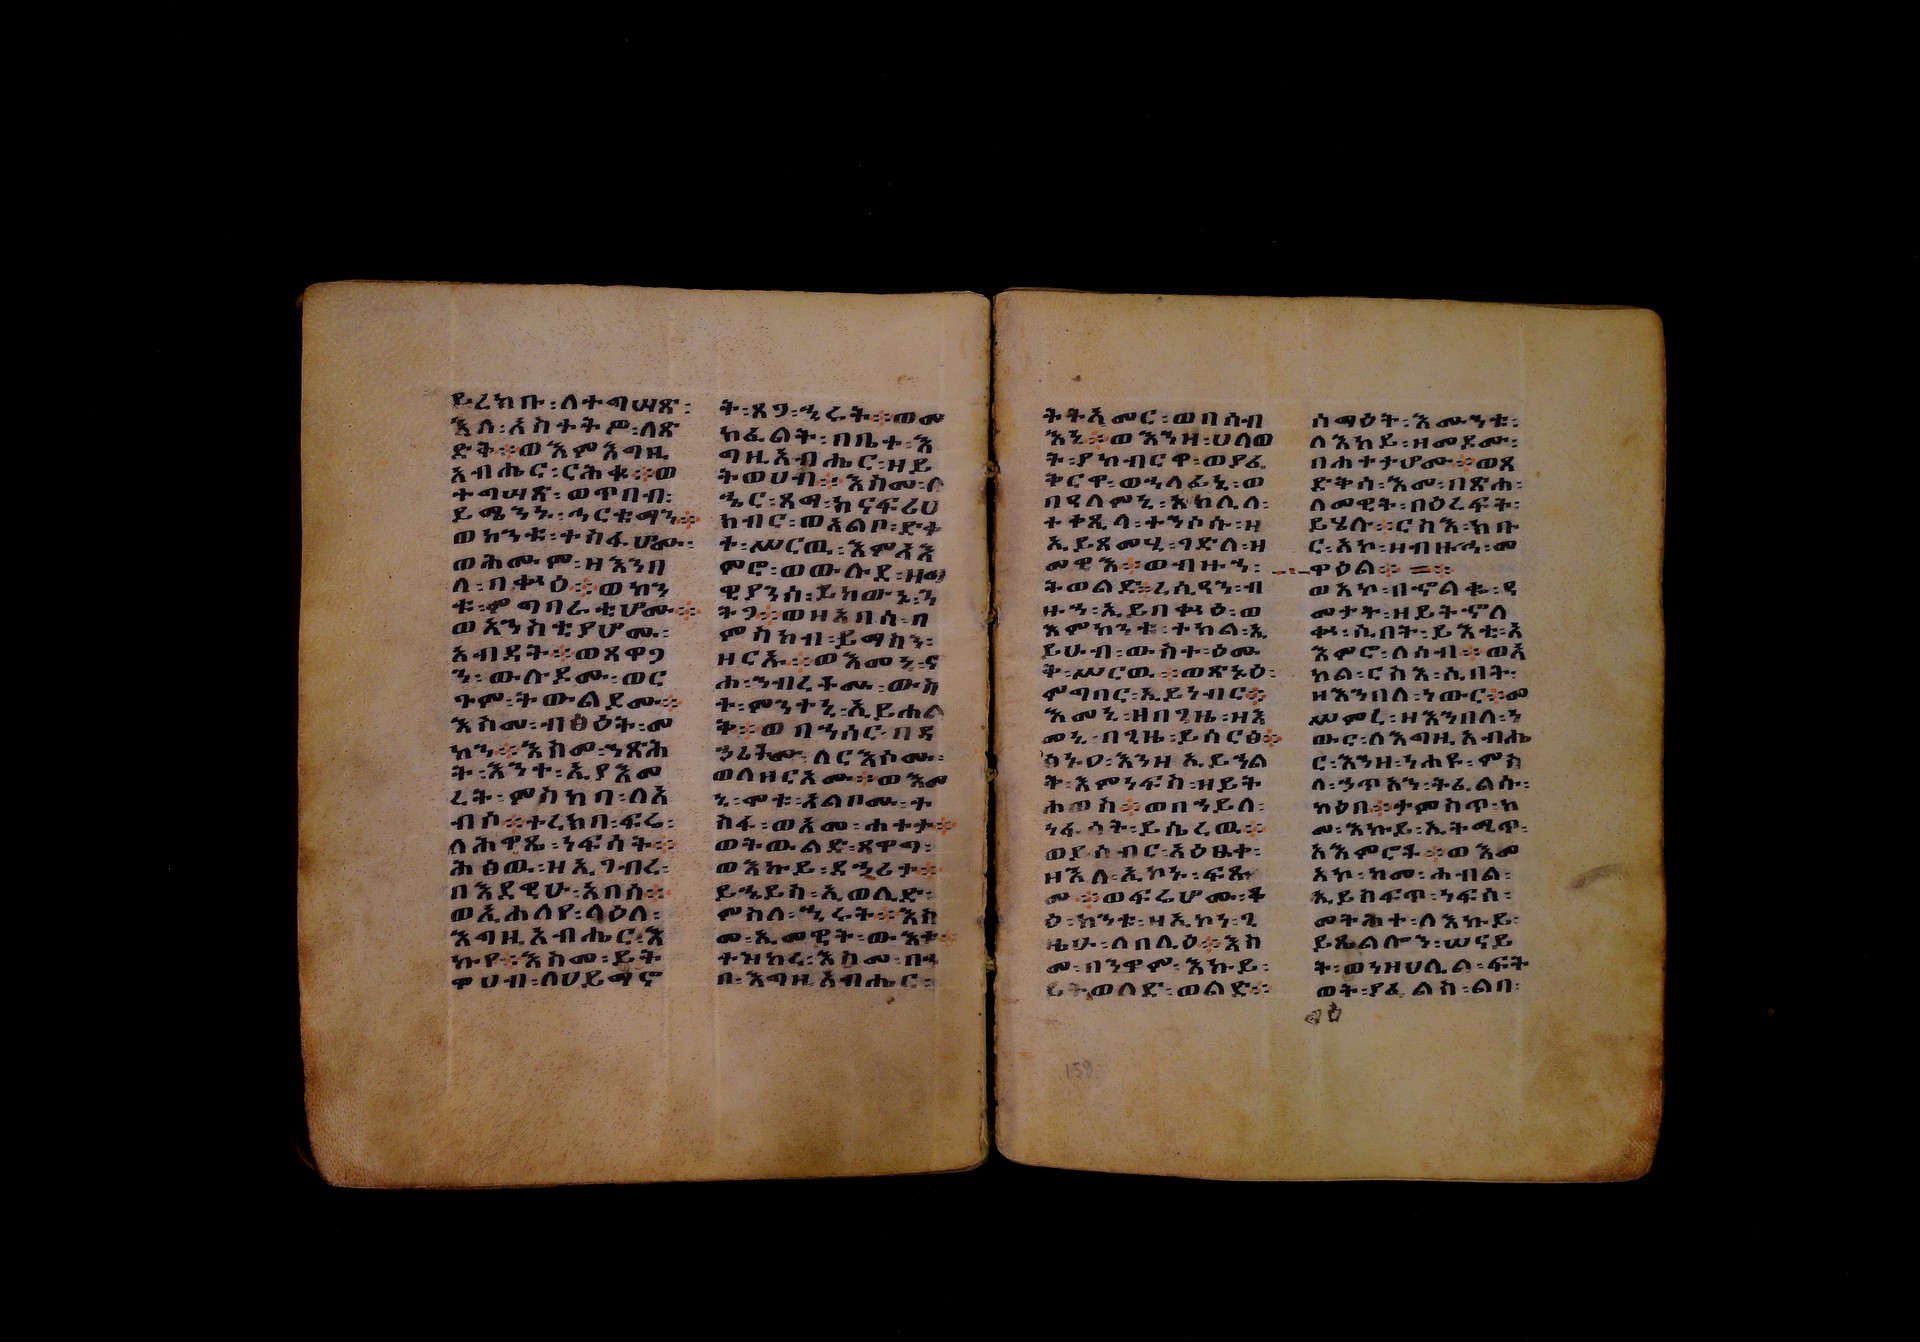 ይረክቡ፡ለተግሣጽ፡
እለ፡አስተትዎ፡ለጽ
ድቅ፡፡ወእምእግዚ
አብሔር፡ርሕቁ፡፡ወ
ተግሣጽ፡ወጥበብ፡
ይሜንኑ፡ኅርቱማን፡፡
ወከንቱ፡ተስፋሆሙ፡
ወሕሙም፡ዘእንበ
ለ፡በቍዕ፡፡ወከን
ቱ፡ምግባራቲሆሙ፡፡
ወአንስቲያሆሙ፡
አብዳት፡፡ወጸዋ
ን፡ውሉዶሙ፡ወር
ጉም፡ትውልዶሙ፡፡
እስመ፡ብፅዕት፡መ
ካን፡፡እስመ፡ንጽሕ
ት፡እንተ፡ኢያእመ
ረት፡ምስካበ፡ለአ
ብሶ፡፡ተረክበ፡ፍሬ፡
ለሕዋጼ፡ነፍሳት፡፡
ሕፅዉ፡ዘኢገብረ፡
በእደዊሁ፡አበሰ፡፡
ወኢሐለየ፡ላዕለ፡
እግዚአብሔር፡እ
ኩየ፡፡እስመ፡ይት
ዋሀብ፡ለሃይማኖ
ት፡ጸጋ፡ኂሩት፡፡ወመ
ክፈልት፡በቤተ፡እ
ግዚአብሔር፡ዘይ
ትወሀብ፡፡እስመ፡ለ
ኄር፡ጻማ፡ከናፍሪሁ
ክብር፡ወአልቦ፡ድቀ
ት፡ሥርዉ፡እምአእ
ምሮ፡ወውሉደ፡ዘማ
ዊያንሰ፡ይከውኑ፡ን
ትጋ፡፡ወዘአበሰ፡በ
ምስካብ፡ይማስን፡
ዘርኡ፡፡ወእመኒ፡ኖ
ሐ፡ንብረቶሙ፡ውስ
ት፡ምንተኒ፡ኢይሐል
ቍ፡፡ወበኀሰር፡በዳ
ኃሪቶሙ፡ለርእሶሙ፡
ወለዘርአሙ፡፡ወእመ
ኒ፡ሞቱ፡አልቦሙ፡ተ
ስፋ፡ወአመ፡ሐተታ፡፡
ወትውልድ፡ጻዋግ፡
ወእኩይ፡ደኃሪታ፡፡
ይኄይስ፡ኢወሊድ፡
ምስለ፡ኂሩት፡፡እስ
መ፡ኢመዊት፡ውእቱ፡፡
ተዝከረ፡እስመ፡በኀ
በ፡እግዚአብሔር፡
ትትአመር፡ወበሰብ
እኒ፡፡ወእንዘ፡ሀለወ
ት፡ያከብርዋ፡ወያፈ
ቅርዋ፡ወኀላፊኒ፡ወ
በዓለምኒ፡አክሊለ፡
ተቀጺላ፡ተኀሶሱ፡ዘ
ኢይጸመሂ፡ገድለ፡ዘ
መዊእ፡፡ወብዙኅ፡
ትወልድ፡፡ረሲዓን፡ብ
ዙኀ፡ኢይበቍዕ፡ወ
እምከንቱ፡ተከል፡ኢ
ይሁብ፡ውስተ፡ዕሙ
ት፡ሥርወ፡፡ወጽኑዕ፡
ምግባር፡ኢይነብር፡፡
እመኒ፡ዘበጊዜ፡ዘእ
መኒ፡በጊዜ፡ይሰርፅ፡፡
ፅኑዐ፡እንዘ፡ኢይኀል
ት፡እምነፍስ፡ዘይት
ሐወስ፡፡ወበኀይለ፡
ነፋሳት፡ይሴረዉ፡፡
ወይሰብር፡አዕፁቀ፡
ዘእለ፡ኢኮኑ፡ፍጹ
መ፡፡ወፍሬሆሙ፡ቶ
ዕ፡ከንቱ፡ዘኢኮነ፡ጊ
ዜሁ፡ለበሊዕ፡፡እስ
መ፡በንዋም፡እኩይ፡
ይትወለድ፡ወልድ፡፡
ሰማዕት፡እሙንቱ፡
ለእከይ፡ዘመደሙ፡
በሐተታሆሙ፡፡ወጻ
ድቅሰ፡እመ፡በጽሐ፡
ለመዊት፡በዕረፍት፡
ይሄሉ፡፡ርስእ፡ክቡ
ር፡አኮ፡ዘብዙኅ፡መ
ዋዕል፡፡ ፡፡
ወአኮ፡በኖልቁ፡ዓ
መታት፡ዘይትኖለ
ቍ፡ሲበት፡ይእቲ፡አ
እምሮ፡ለሰብ፡፡ወአ
ከል፡ርስእ፡ሲበት፡
ዘእንበለ፡ነውር፡፡መ
ሥምረ፡ዘእንበለ፡ነ
ውር፡ለእግዚአብሔ
ር፡እንዘ፡ነሐዩ፡ምስ
ለ፡ኃጥአን፡ትፈልሱ፡
ከዕበ፡፡ታምስጥ፡ከ
መ፡እኩይ፡ኢትሚጥ፡
አእምሮቶ፡፡ወእመ
አኮ፡ከመ፡ሐብል፡
ኢይስፍጥ፡ነፍሰ፡
መትሕተ፡ለእኩይ፡
ይጼልሎን፡ሠናይ
ት፡ወነዘህሊል፡ፍት
ወት፡ያፈልስ፡ልበ፡
159